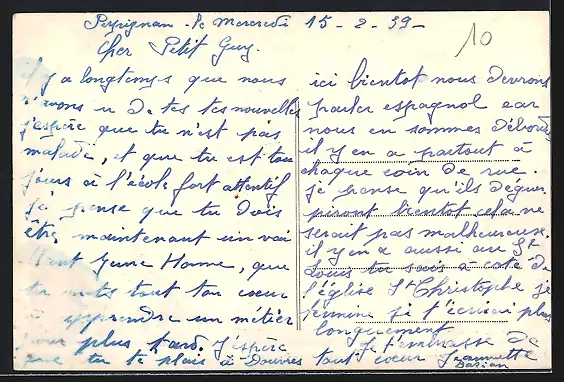 Perpignan - le Mercredi 15 - 2 - 39 -
10
Cher Petit Guy.
il y a longtemps que nous
n'avons u De tes tes nouvelles
j'espère que tu n'est pas
malade, et que tu est tou
jours à l'école fort attentif
je pense que tu Dois
être maintenant un vrai
jeune Homme, que
tu mets tout ton coeur
à apprendre un métier
pour plus tard. J'éspère
que tu te plais à
ici bientot nous devrons
parler espagnol car
nous en sommes Débordés
il y en a partout à
chaque coin de rue.
je pense qu'ils Déguer
piront bientot cela ne
serait pas malheureuse.
il y en a aussi au St
Louis tu sais à coté de
l'église St Christophe je
termine je t'écrirai plus
longuement
Je t'embrasse De
tout coeur Jeannette